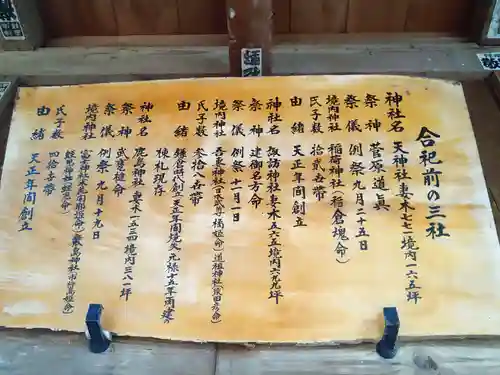 合祀前の三社
神社名 天神社 妻木七七一 境内一六五坪
祭神 菅原道真
祭儀 例祭 九月二十五日
境内神社 稲荷神社(稲倉魂命)
氏子数 拾弐舌帯
由緒 天正年間創立
神社名 諏訪神社 妻木五六五 境内六九九坪
祭神 建御名方命
祭儀 例祭 十一月二日
境内神社 吾妻神社(日本武尊 橘姫命) 道祖神社(猿田彦命)
氏子数 参拾八舌帯
由緒
棟札現存
神社名 鹿島神社 妻木一五三四 境内三八一坪
祭神 武甕槌命
祭儀 例祭 九月十九日
境内神社
氏子数 四拾舌帯
由緒 天正年間創立